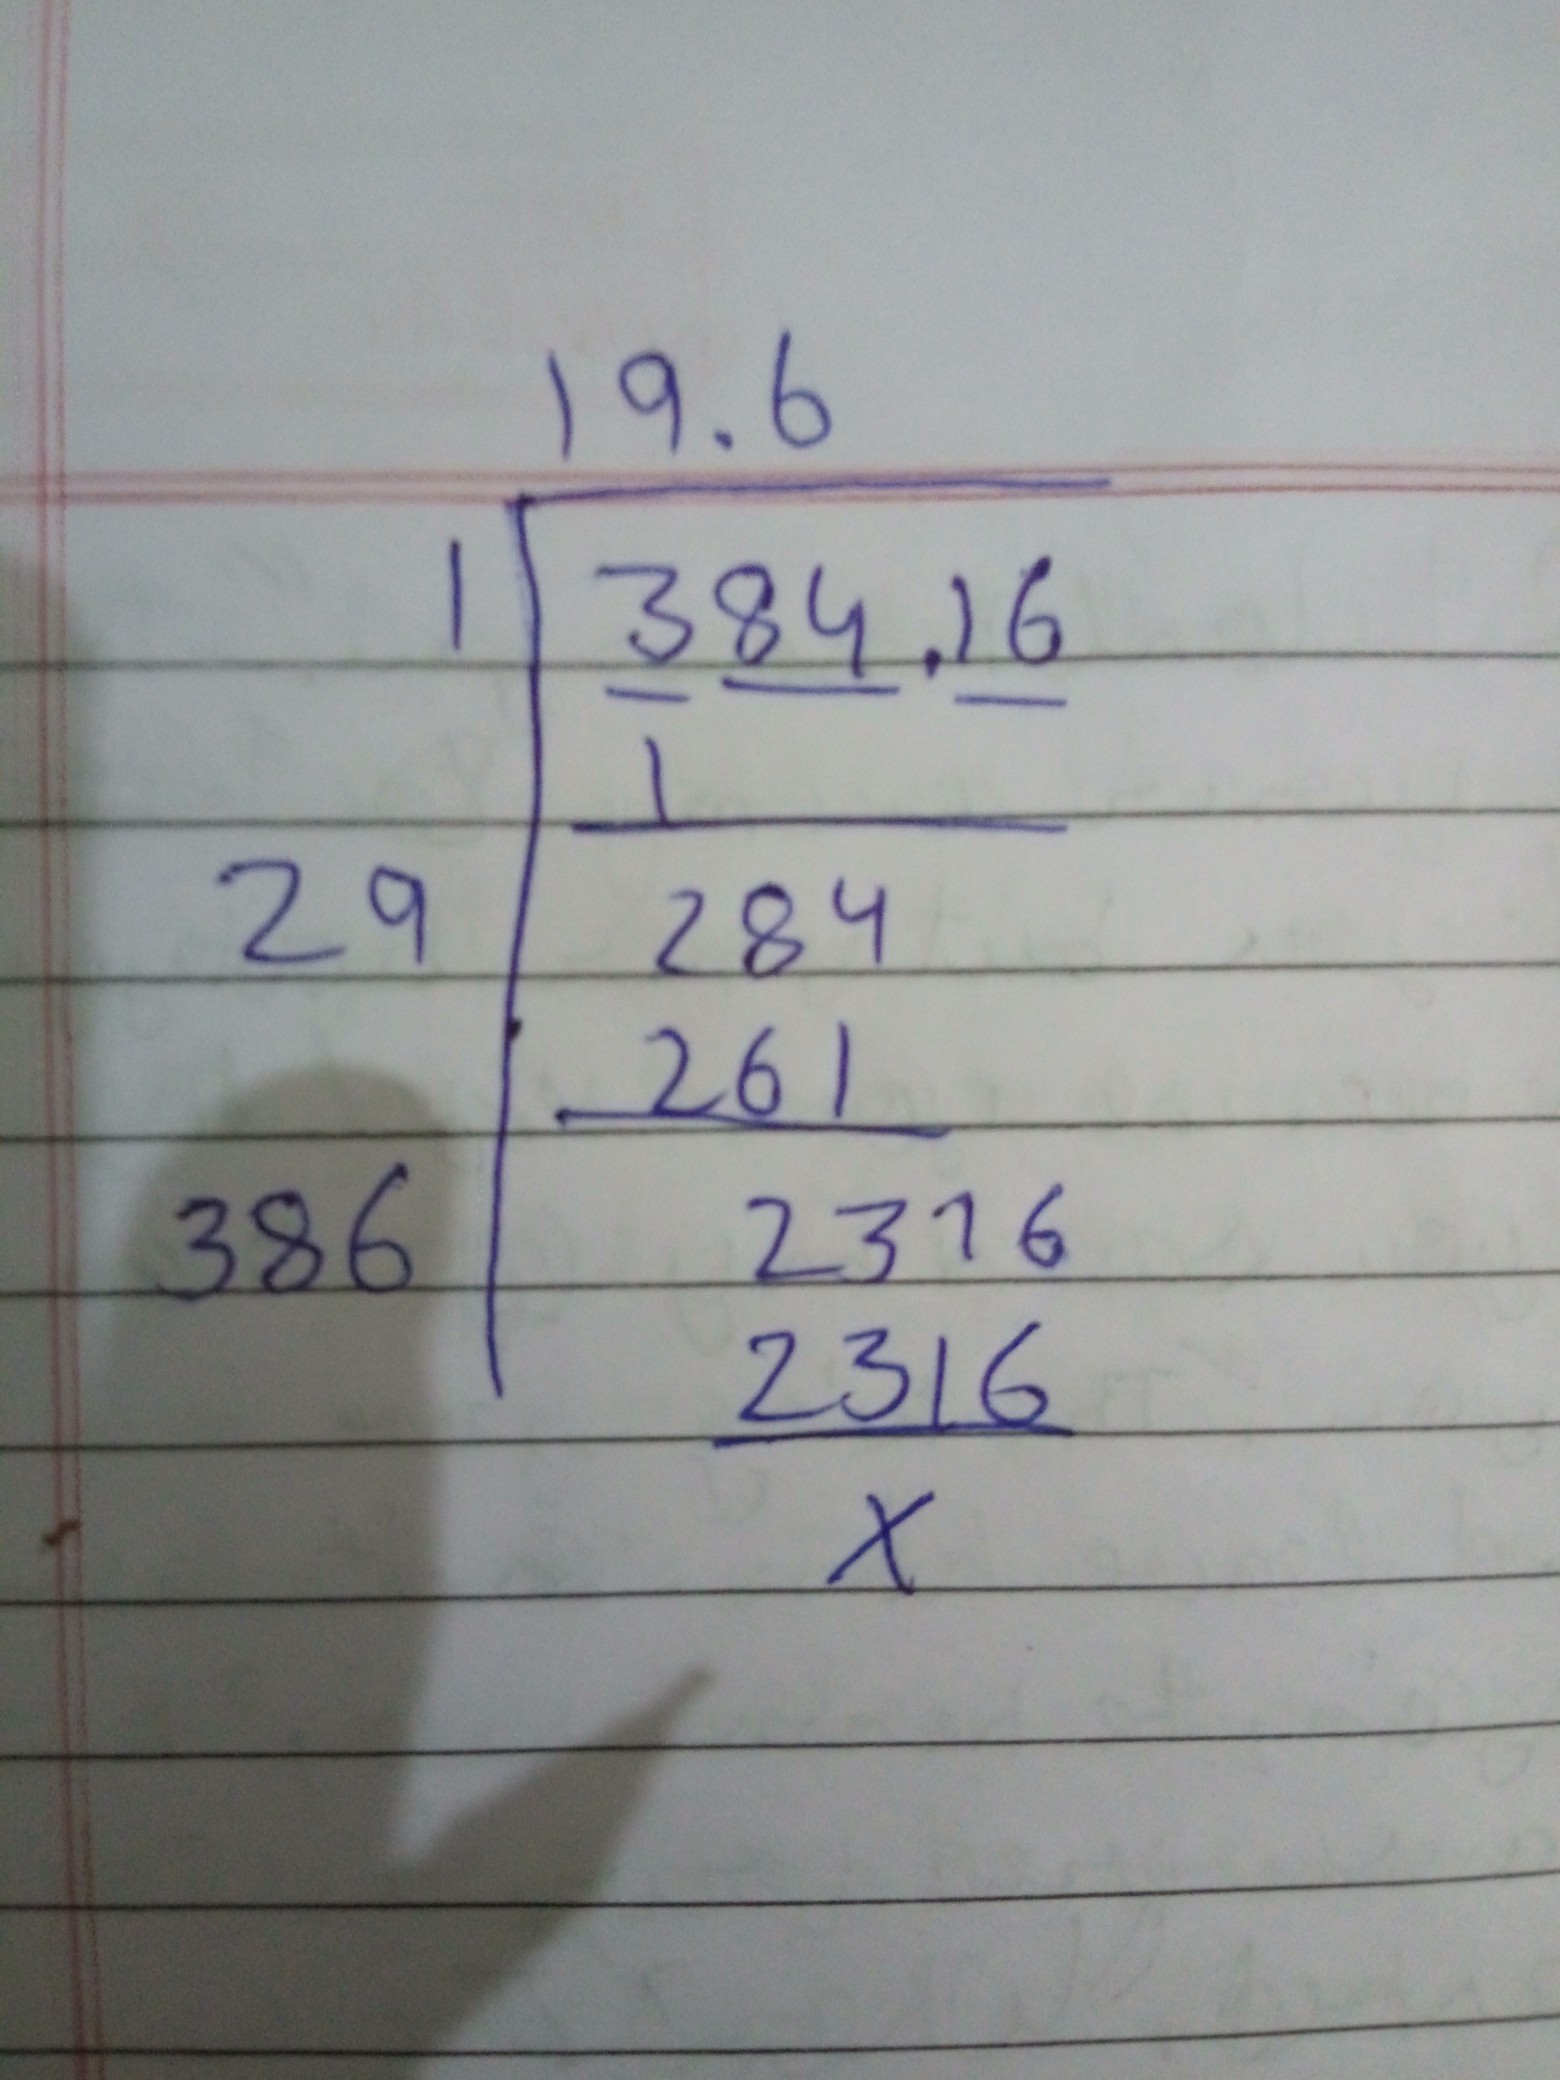 19.6
1 384.16
1
29 284
261
386 2316
2316
x